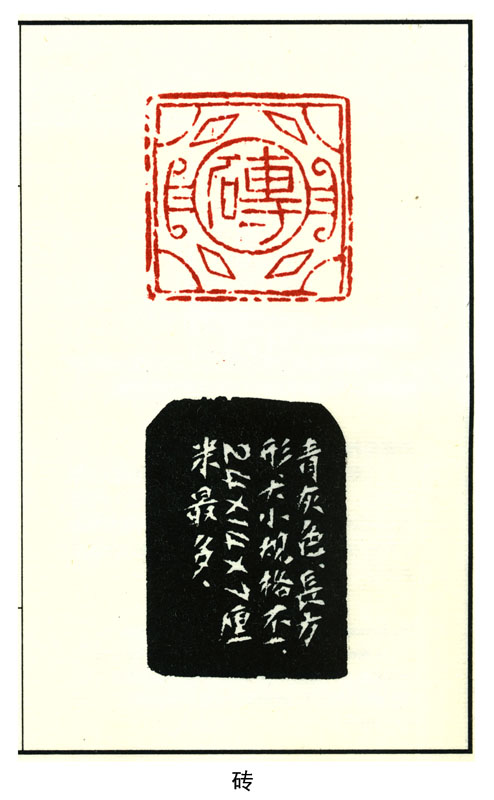 磚
青灰色、長方
形大小規格不一、
24×14×7厘
米最多、
砖